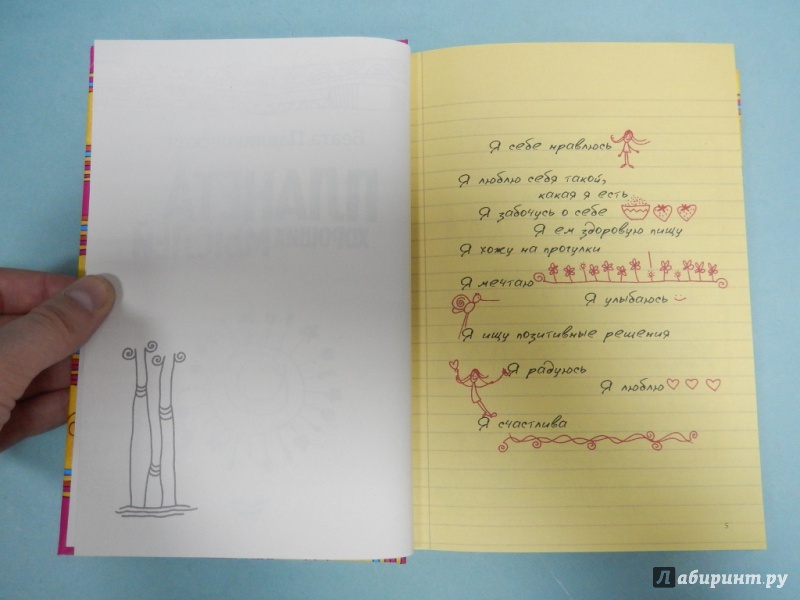 Я себе нравлюсь
Я люблю себя такой,
какая я есть
Я забочусь о себе
Я ем здоровую пищу
Я хожу на прогулки
Я мечтаю
Я улыбаюсь
Я ищу позитивные решения
Я радуюсь
Я люблю
Я счастлива
5
Лабиринт.ру